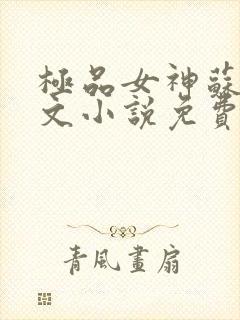 極品女神蘇
文小說免費
青風畫扇